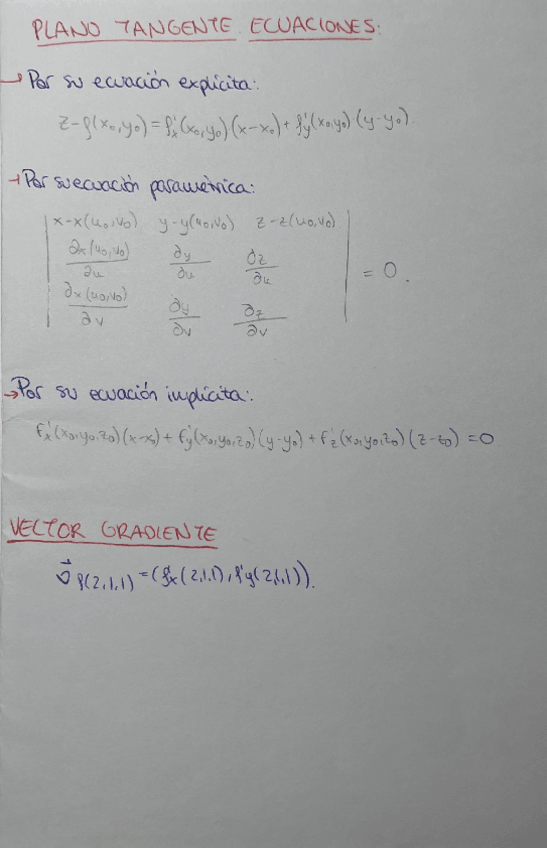 PLANO TANGENTE ECUACIONES:
→ Por su ecuación explícita:
z-f(x₀,y₀) = f'x(x₀,y₀)(x-x₀) + f'y(x₀,y₀)(y-y₀).
→ Por su ecuación paramétrica:
| x-x(u₀,v₀) y-y(u₀,v₀) z-z(u₀,v₀) |
| ∂x(u₀,v₀)/∂u ∂y/∂u ∂z/∂u | = 0.
| ∂x(u₀,v₀)/∂v ∂y/∂v ∂z/∂v |
→ Por su ecuación implícita:
f'x(x₀,y₀,z₀)(x-x₀) + f'y(x₀,y₀,z₀)(y-y₀) + f'z(x₀,y₀,z₀)(z-z₀) = 0
VECTOR GRADIENTE
∇⃗ f(2,1,1) = (f'x(2,1,1), f'y(2,1,1)).